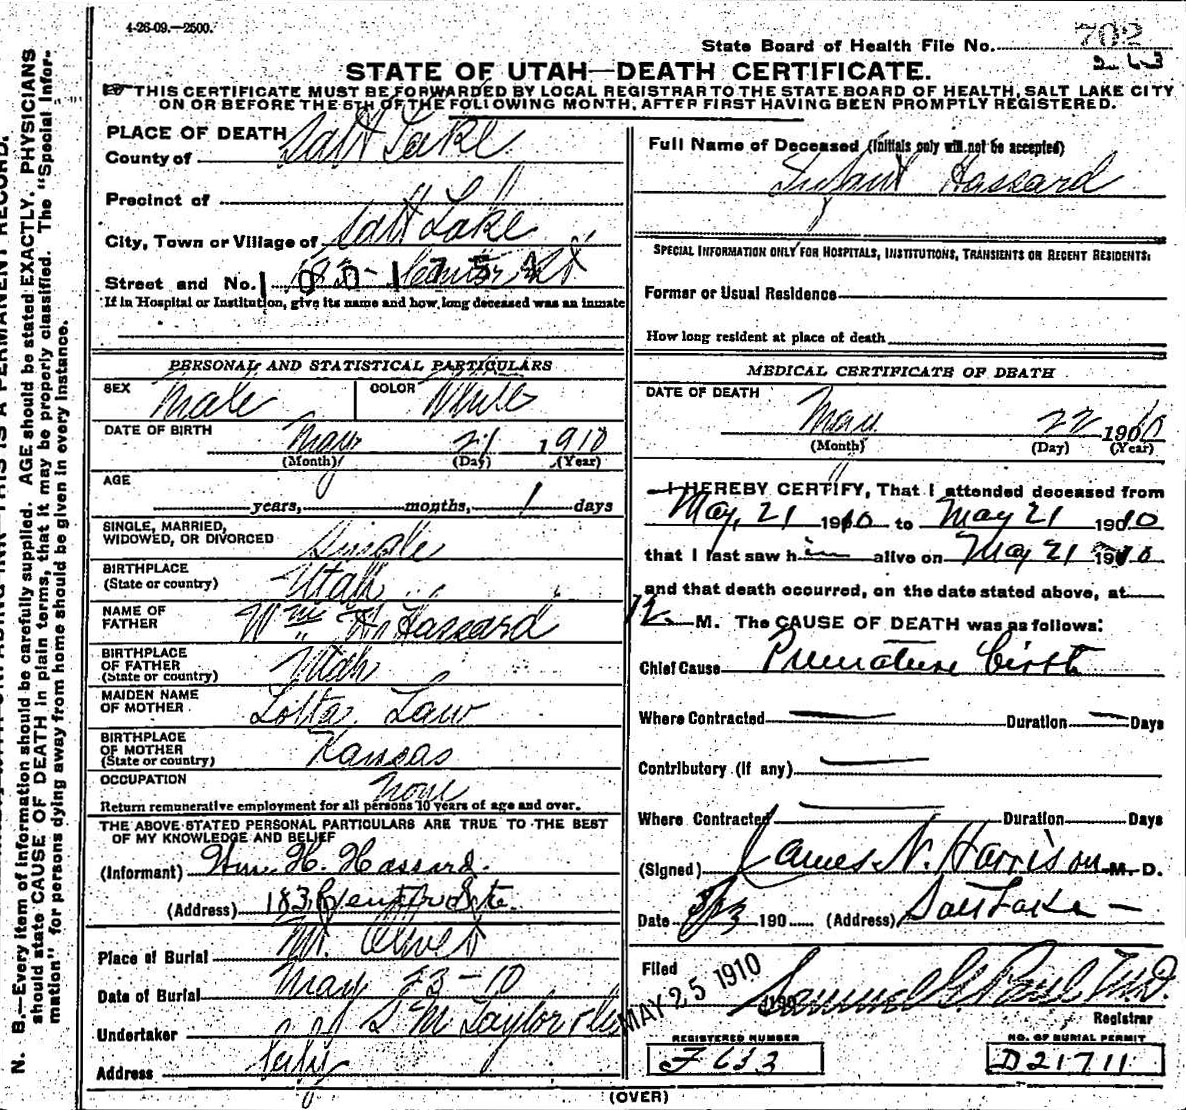 4-26-09.—2500.
State Board of Health File No. 702
263
STATE OF UTAH—DEATH CERTIFICATE.
THIS CERTIFICATE MUST BE FORWARDED BY LOCAL REGISTRAR TO THE STATE BOARD OF HEALTH, SALT LAKE CITY
ON OR BEFORE THE 5TH OF THE FOLLOWING MONTH, AFTER FIRST HAVING BEEN PROMPTLY REGISTERED.
PLACE OF DEATH
County of Salt Lake
Precinct of
City, Town or Village of Salt Lake
Street and No. 183 Center St
1001751
If in Hospital or Institution, give its name and how long deceased was an inmate
PERSONAL AND STATISTICAL PARTICULARS
SEX Male COLOR White
DATE OF BIRTH May 21 1910
(Month) (Day) (Year)
AGE
years, months, 1 days
SINGLE, MARRIED,
WIDOWED, OR DIVORCED Single
BIRTHPLACE
(State or country) Utah
NAME OF
FATHER Wm H. Hassard
BIRTHPLACE
OF FATHER
(State or country) Utah
MAIDEN NAME
OF MOTHER Lotta Law
BIRTHPLACE
OF MOTHER
(State or country) Kansas
OCCUPATION None
Return remunerative employment for all persons 10 years of age and over.
THE ABOVE STATED PERSONAL PARTICULARS ARE TRUE TO THE BEST
OF MY KNOWLEDGE AND BELIEF
(Informant) Wm. H. Hassard.
(Address) 183 Center Ste.
Place of Burial Mt. Olivet
Date of Burial May 23-10
Undertaker S M Taylor & Co
Address City
Full Name of Deceased (Initials only will not be accepted)
Infant Hassard
SPECIAL INFORMATION ONLY FOR HOSPITALS, INSTITUTIONS, TRANSIENTS OR RECENT RESIDENTS:
Former or Usual Residence
How long resident at place of death
MEDICAL CERTIFICATE OF DEATH
DATE OF DEATH
May 22 1910
(Month) (Day) (Year)
I HEREBY CERTIFY, That I attended deceased from
May, 21 1910 to May 21 1910
that I last saw him alive on May 21 1910
and that death occurred, on the date stated above, at
12 M. The CAUSE OF DEATH was as follows:
Chief Cause Premature birth
Where Contracted — Duration — Days
Contributory (if any) —
Where Contracted — Duration Days
(Signed) James N. Harrison M. D.
Date 190 (Address) Salt Lake —
Filed MAY 25 1910 190 Samuel G. Paul M.D.
Registrar
REGISTERED NUMBER
F 633
NO. OF BURIAL PERMIT
D21711
(OVER)
N. B.—Every item of information should be carefully supplied. AGE should be stated EXACTLY. PHYSICIANS
should state CAUSE OF DEATH in plain terms, that it may be properly classified. The "Special Infor-
mation" for persons dying away from home should be given in every instance.